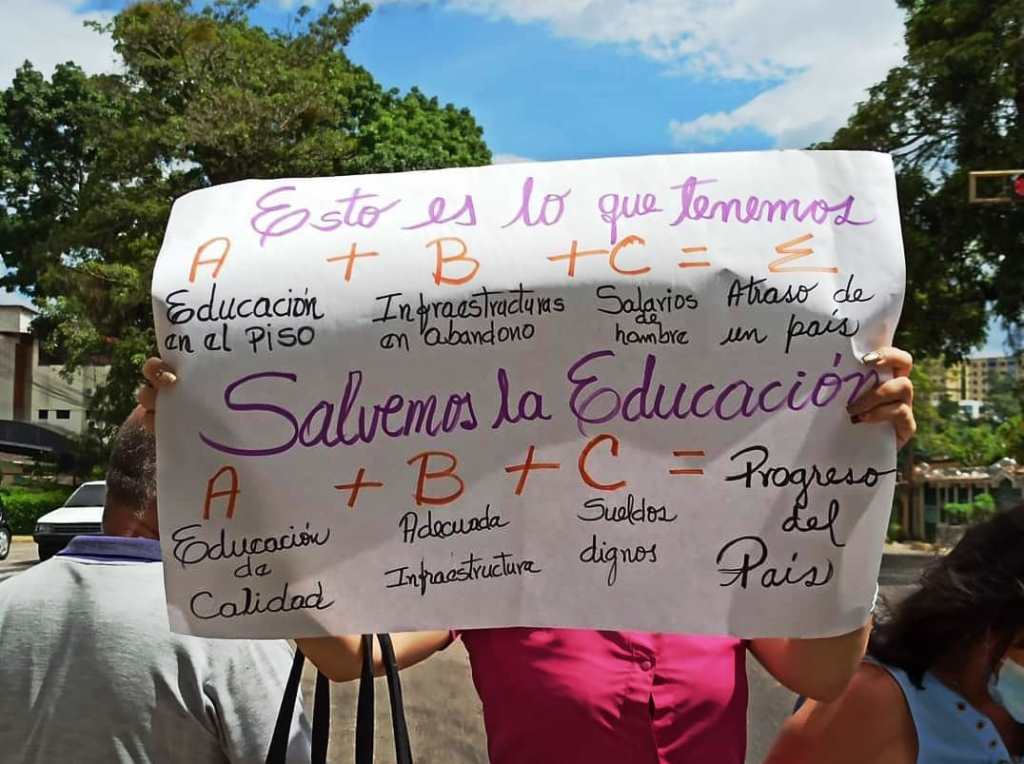 Esto es lo que tenemos
A + B + C = Σ
Educación en el piso
Infraestructuras en abandono
Salarios de hambre
Atraso de un país
Salvemos la Educación
A + B + C = Progreso del País
Educación de Calidad
Adecuada Infraestructura
Sueldos dignos